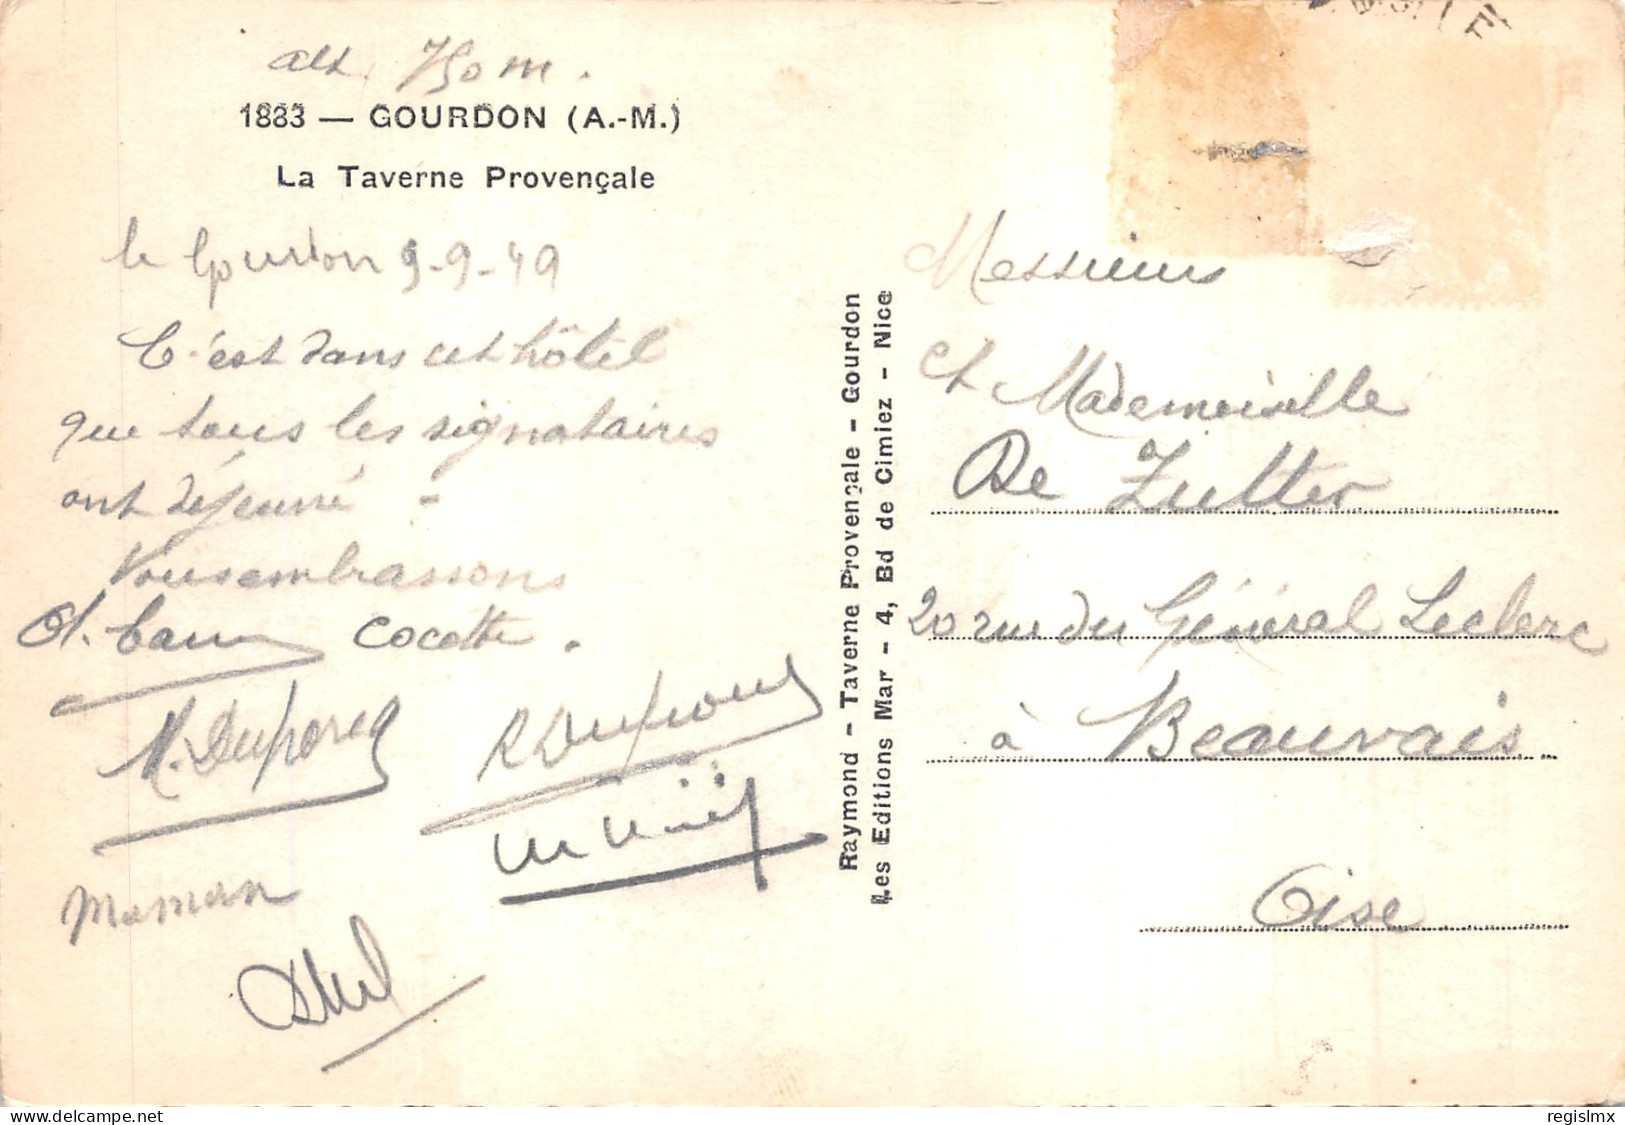 alt. 750 m.
1883 — GOURDON (A.-M.)
La Taverne Provençale
le Gourdon 9-9-49
C'est dans cet hôtel
que tous les signataires
ont déjeuné -
Vous embrassons
Cocotte.
R Dupont
Maman
Raymond - Taverne Provençale - Gourdon
Les Editions Mar - 4, Bd de Cimiez - Nice
Messieurs
et Mademoiselle
De Zutter
20 rue du Général Leclerc
à Beauvais
Oise
delcampe.net
regislmx